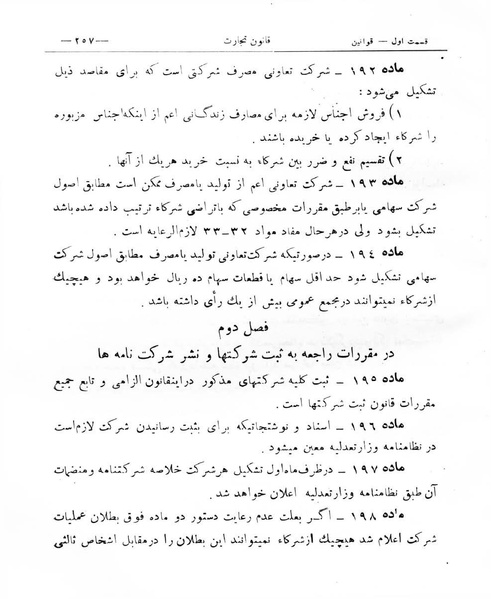 قسمت اول — قوانین
قانون تجارت
— ۲۵۷ —
ماده ۱۹۲ ـ شرکت تعاونی مصرف شرکتی است که برای مقاصد ذیل
تشکیل می‌شود :
۱) فروش اجناس لازمه برای مصارف زندگانی اعم از اینکه‌اجناس مزبوره
را شرکاء ایجاد کرده یا خریده باشند .
۲) تقسیم نفع و ضرر بین شرکاء به نسبت خرید هریك از آنها .
ماده ۱۹۳ ـ شرکت تعاونی اعم از تولید یامصرف ممکن است مطابق اصول
شرکت سهامی یابرطبق مقررات مخصوصی که باتراضی شرکاء ترتیب داده شده‌باشد
تشکیل بشود ولی درهرحال مفاد مواد ۳۲ـ۳۳ لازم‌الرعایه است .
ماده ۱۹٤ ـ درصورتیکه شرکت‌تعاونی تولید یامصرف مطابق اصول شرکت
سهامی تشکیل شود حداقل سهام یاقطعات سهام ده ریال خواهد بود و هیچیك
ازشرکاء نمیتوانند درمجمع عمومی بیش از یك رأی داشته باشد .
فصل دوم
در مقررات راجعه به ثبت شرکتها و نشر شرکت نامه ها
ماده ۱۹۵ ـ ثبت کلیه شرکتهای مذکور دراینقانون الزامی و تابع جمیع
مقررات قانون ثبت شرکتها است .
ماده ۱۹٦ ـ اسناد و نوشتجاتیکه برای بثبت رسانیدن شرکت لازم‌است
در نظامنامه وزارتعدلیه معین میشود .
ماده ۱۹۷ ـ درظرف‌ماه‌اول تشکیل هرشرکت خلاصه شرکتنامه ومنضمات
آن طبق نظامنامه وزارتعدلیه اعلان خواهد شد .
ماده ۱۹۸ ـ اگر بعلت عدم رعایت دستور دو ماده فوق بطلان عملیات
شرکت اعلام شد هیچیك ازشرکاء نمیتوانند این بطلان را درمقابل اشخاص ثالثی